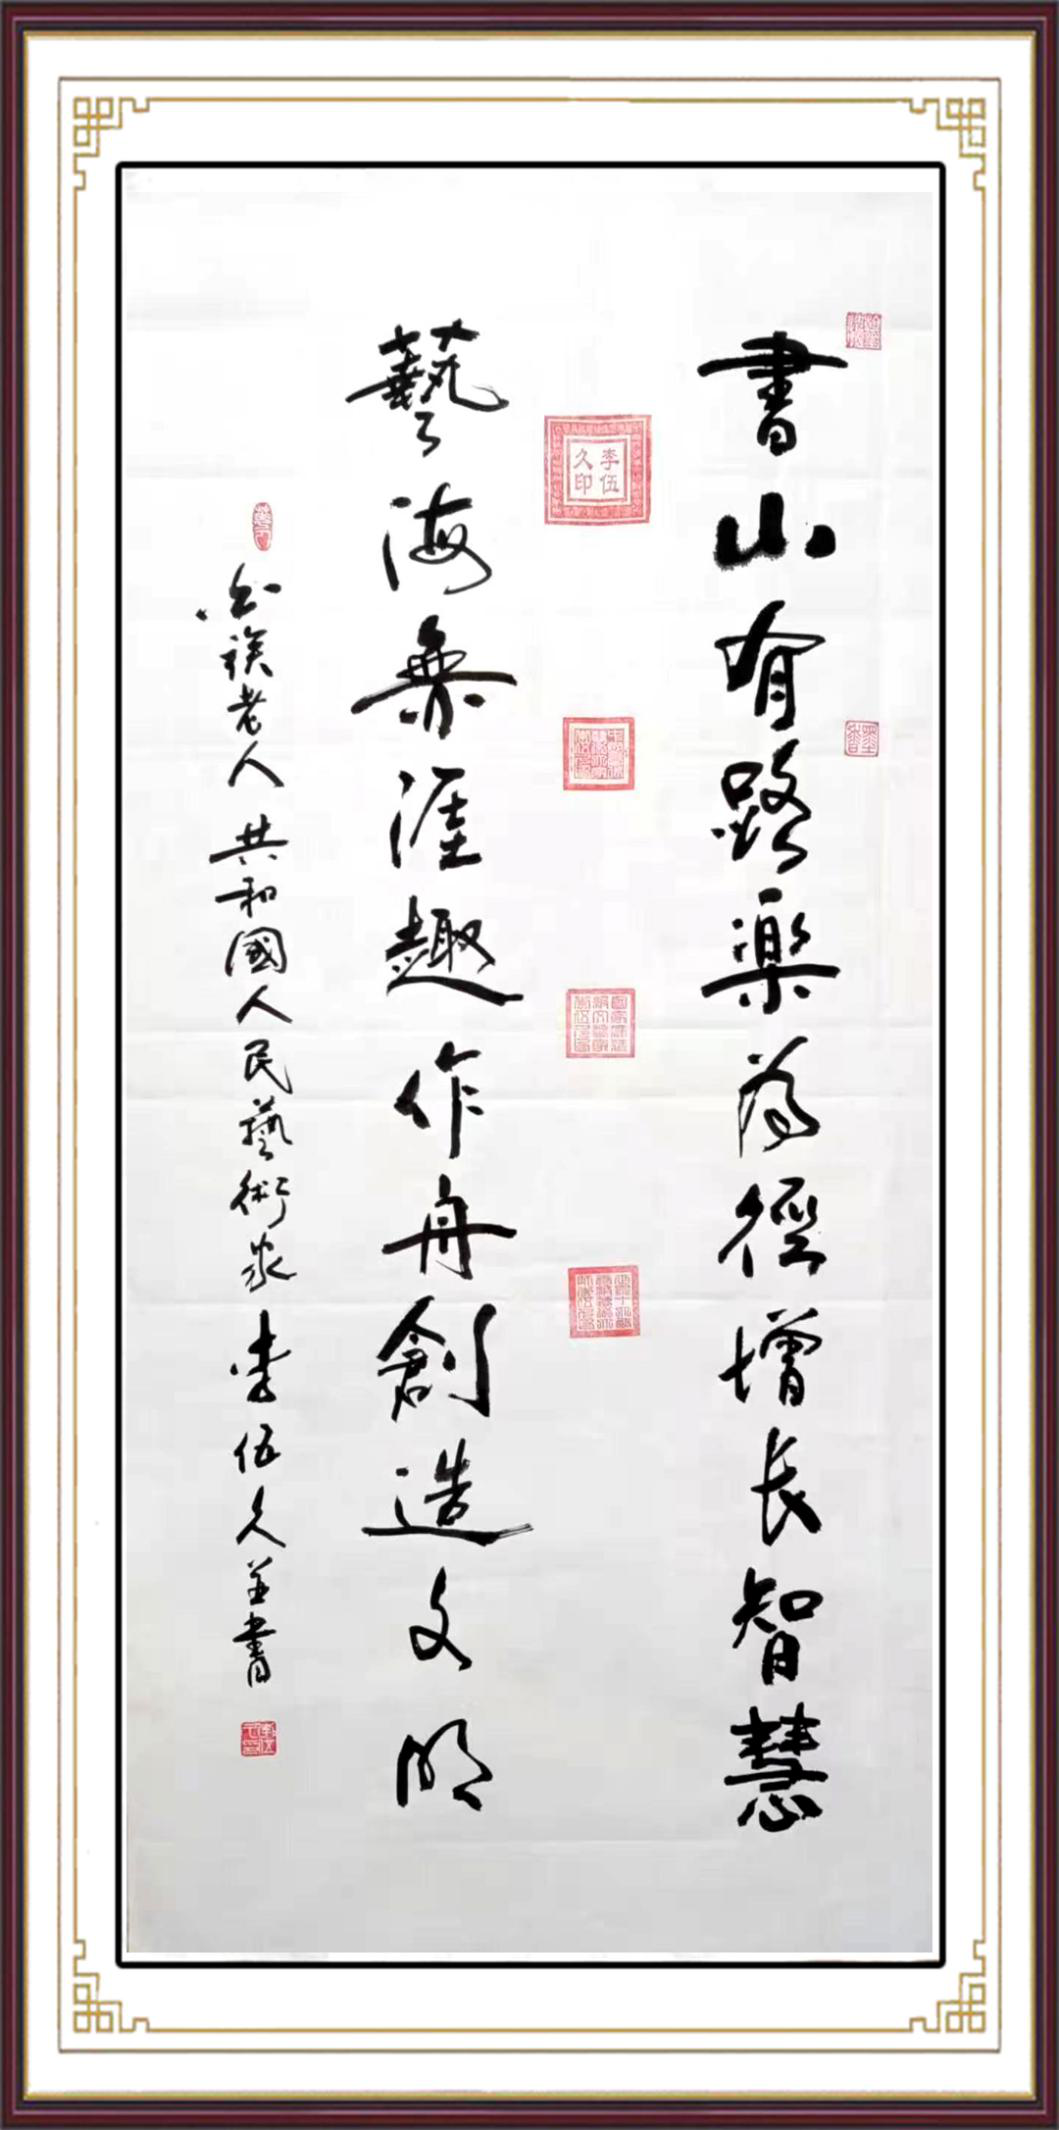 書山有路樂為徑增長智慧
李伍久印
墨香
藝海無涯趣作舟創造文明
族老人 共和國人民藝術家 李伍久並書